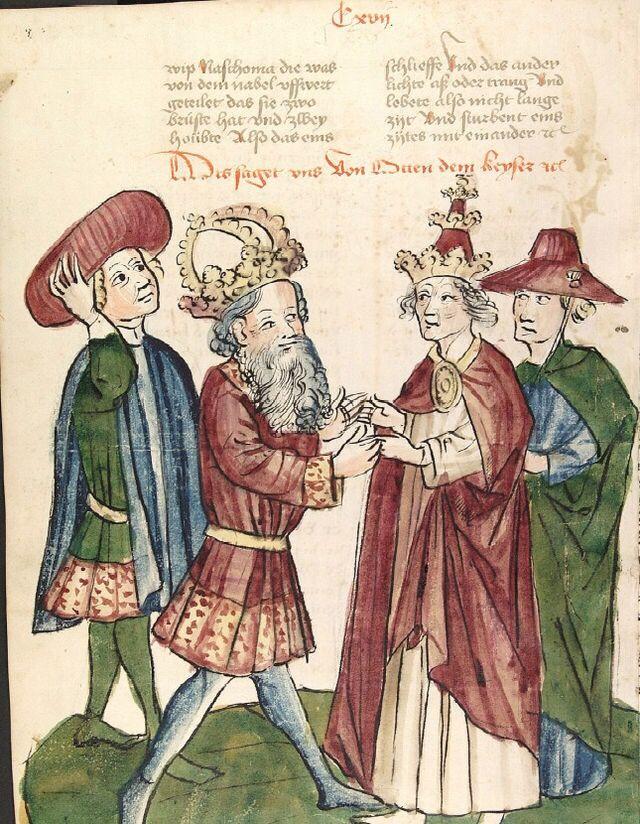 Cxvij
wip Naschoma die was
von dem nabel uffwert
geteilet das sie zwo
brüste hat vnd zwey
houbte Also das eins
schlieffe Vnd das ander
lichte aß oder trang Vnd
lebete also nicht lange
zijt Vnd sturbent eins
zijtes mit einander ꝛc
Dis saget vns Von Otten dem keyser ꝛc